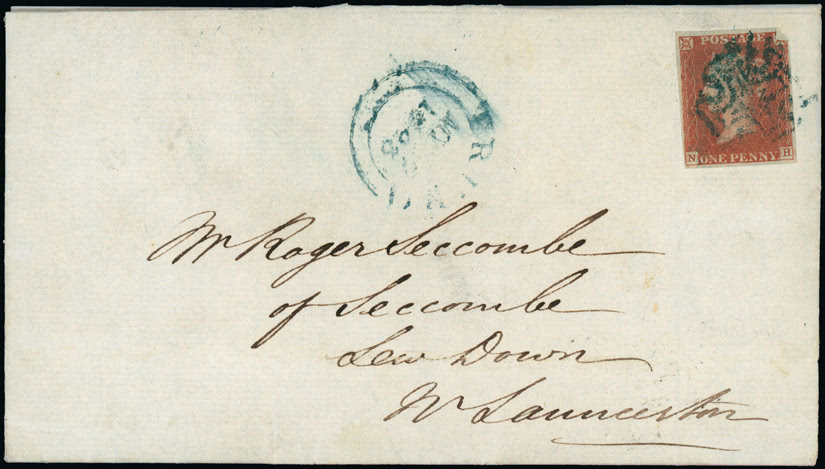 POSTAGE
N ONE PENNY H
Mr Roger Seccombe
of Seccombe
Lew Down
Nr Launceston